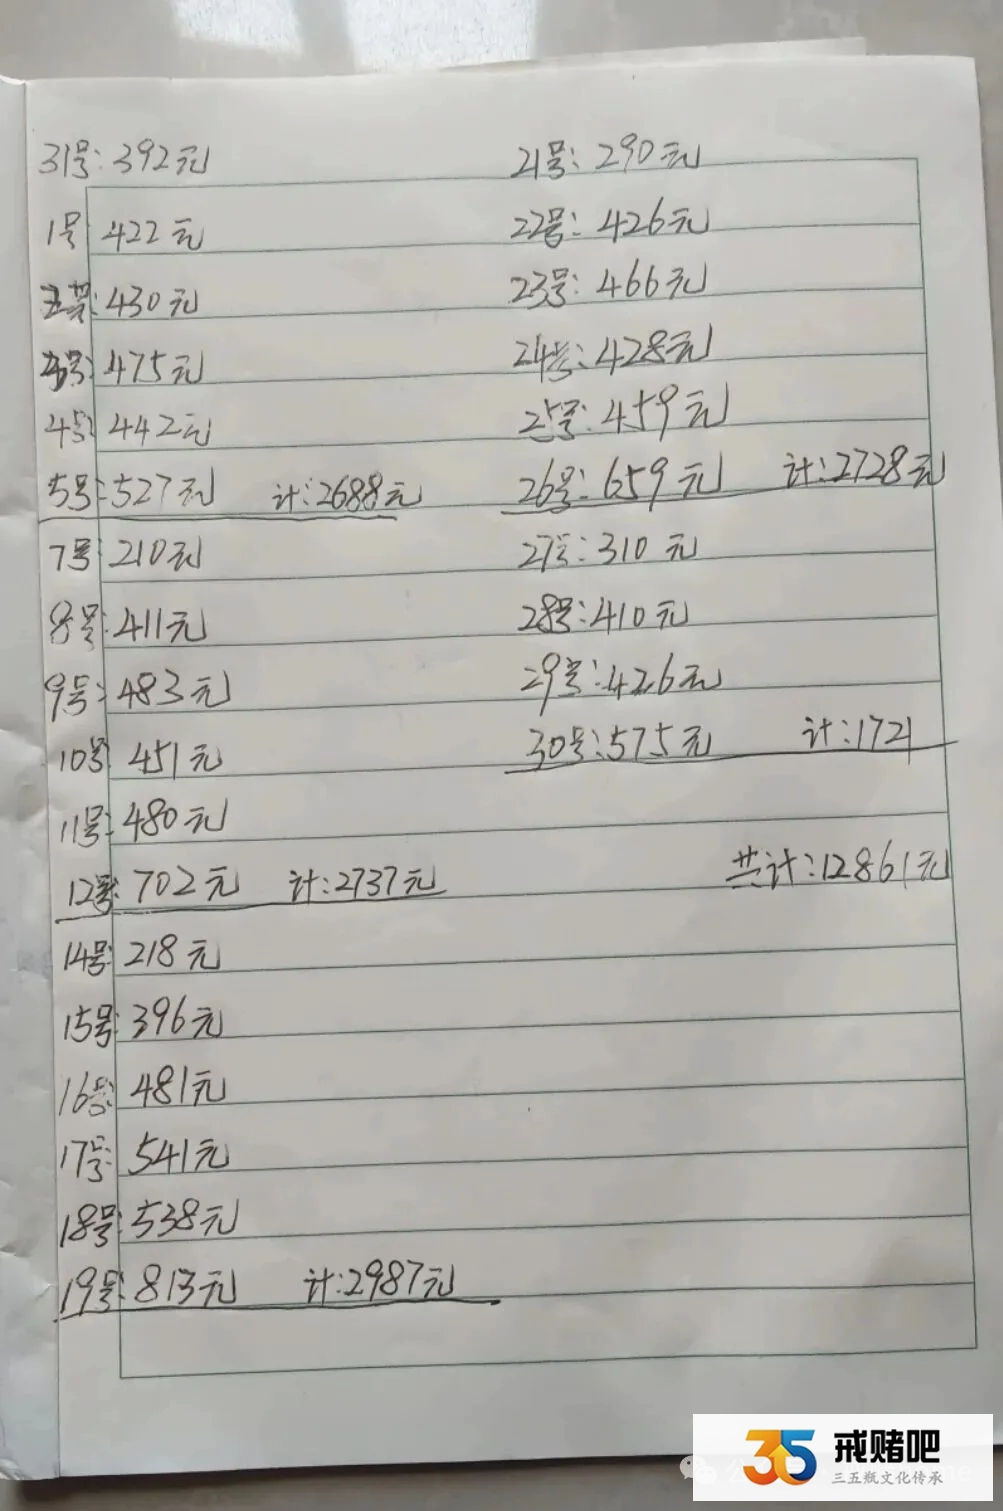 31号:392元
1号:422元
430元
号:475元
4号:442元
5号:527元 计:2688元
7号:210元
8号:411元
9号:483元
10号:451元
11号:480元
12号:702元 计:2737元
14号:218元
15号:396元
16号:481元
17号:541元
18号:538元
19号:813元 计:2987元
21号:290元
22号:426元
23号:466元
24号:428元
25号:459元
26号:659元 计:2728元
27号:310元
28号:410元
29号:426元
30号:575元 计:1721
共计:12861元
35 戒赌吧
三五瓶文化传承